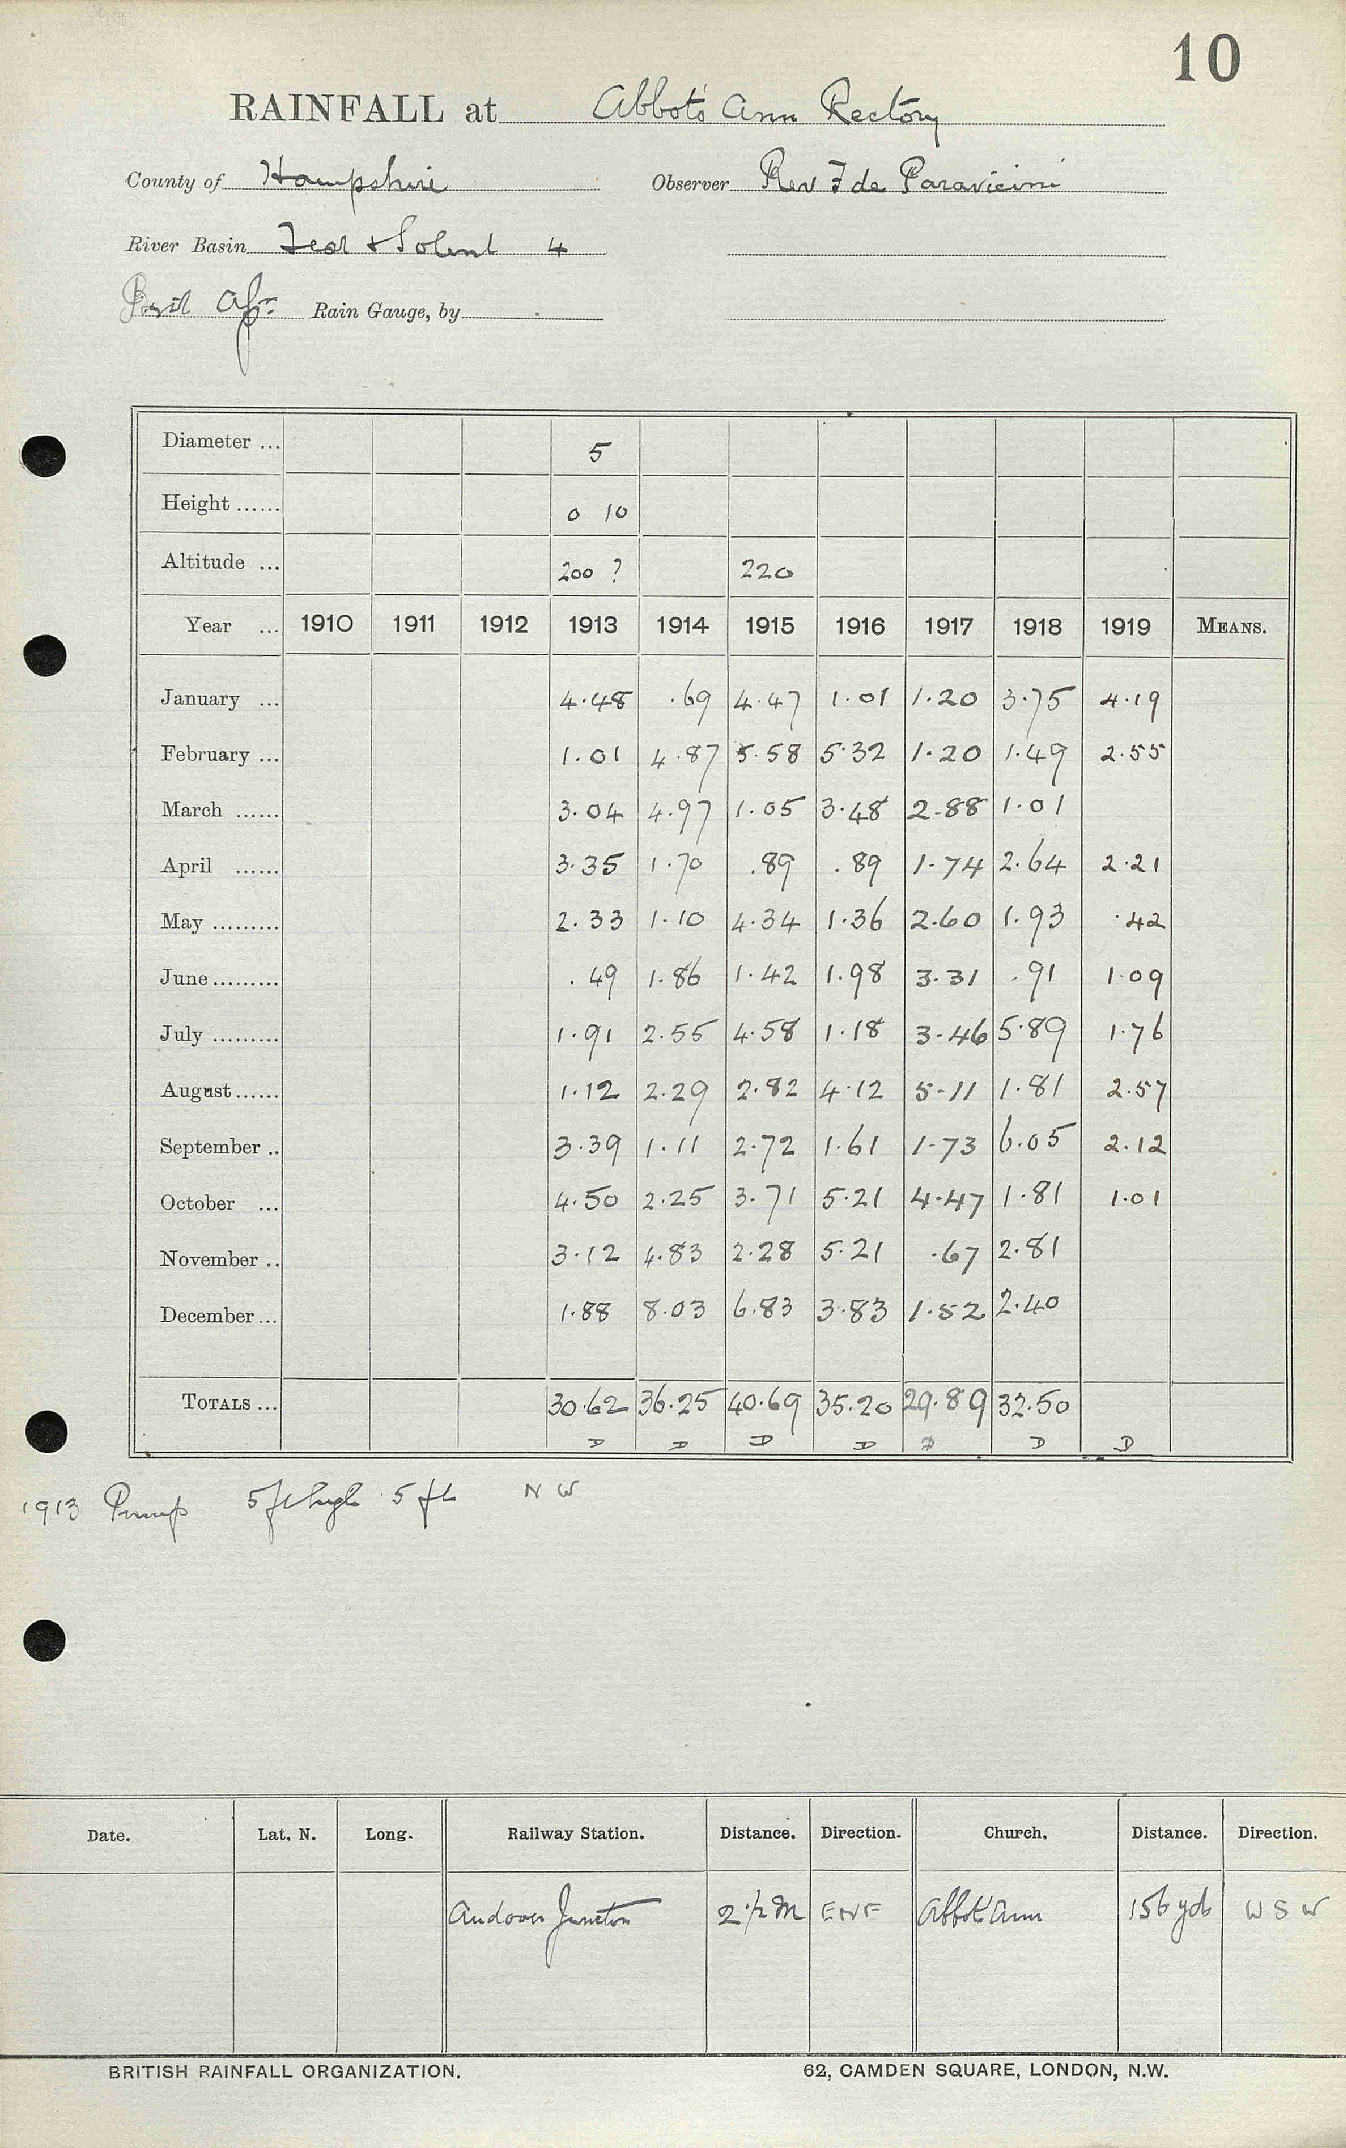 10
RAINFALL at Abbots Ann Rectory
County of Hampshire Observer Rev F de Paravicini
River Basin Test & Solent 4
Rain Gauge, by
Diameter ... 5
Height ...... 0 10
Altitude ... 200 ? 220
Year ... 1910 1911 1912 1913 1914 1915 1916 1917 1918 1919 MEANS.
January ... 4.48 .69 4.47 1.01 1.20 3.75 4.19
February ... 1.01 4.87 5.58 5.32 1.20 1.49 2.55
March ...... 3.04 4.97 1.05 3.48 2.88 1.01
April ...... 3.35 1.70 .89 .89 1.74 2.64 2.21
May ......... 2.33 1.10 4.34 1.36 2.60 1.93 .42
June ......... .49 1.86 1.42 1.98 3.31 .91 1.09
July ......... 1.91 2.55 4.58 1.18 3.46 5.89 1.76
August ...... 1.12 2.29 2.82 4.12 5.11 1.81 2.57
September .. 3.39 1.11 2.72 1.61 1.73 6.05 2.12
October ... 4.50 2.25 3.71 5.21 4.47 1.81 1.01
November .. 3.12 4.83 2.28 5.21 .67 2.81
December ... 1.88 8.03 6.83 3.83 1.52 2.40
TOTALS ... 30.62 36.25 40.69 35.20 29.89 32.50
D D D D D D D
1913 Pump 5 ft high 5 ft NW
Date. Lat. N. Long. Railway Station. Distance. Direction. Church. Distance. Direction.
Andover Junction 2 1/2 M ENE Abbots Ann 156 yds WSW
BRITISH RAINFALL ORGANIZATION. 62, CAMDEN SQUARE, LONDON, N.W.